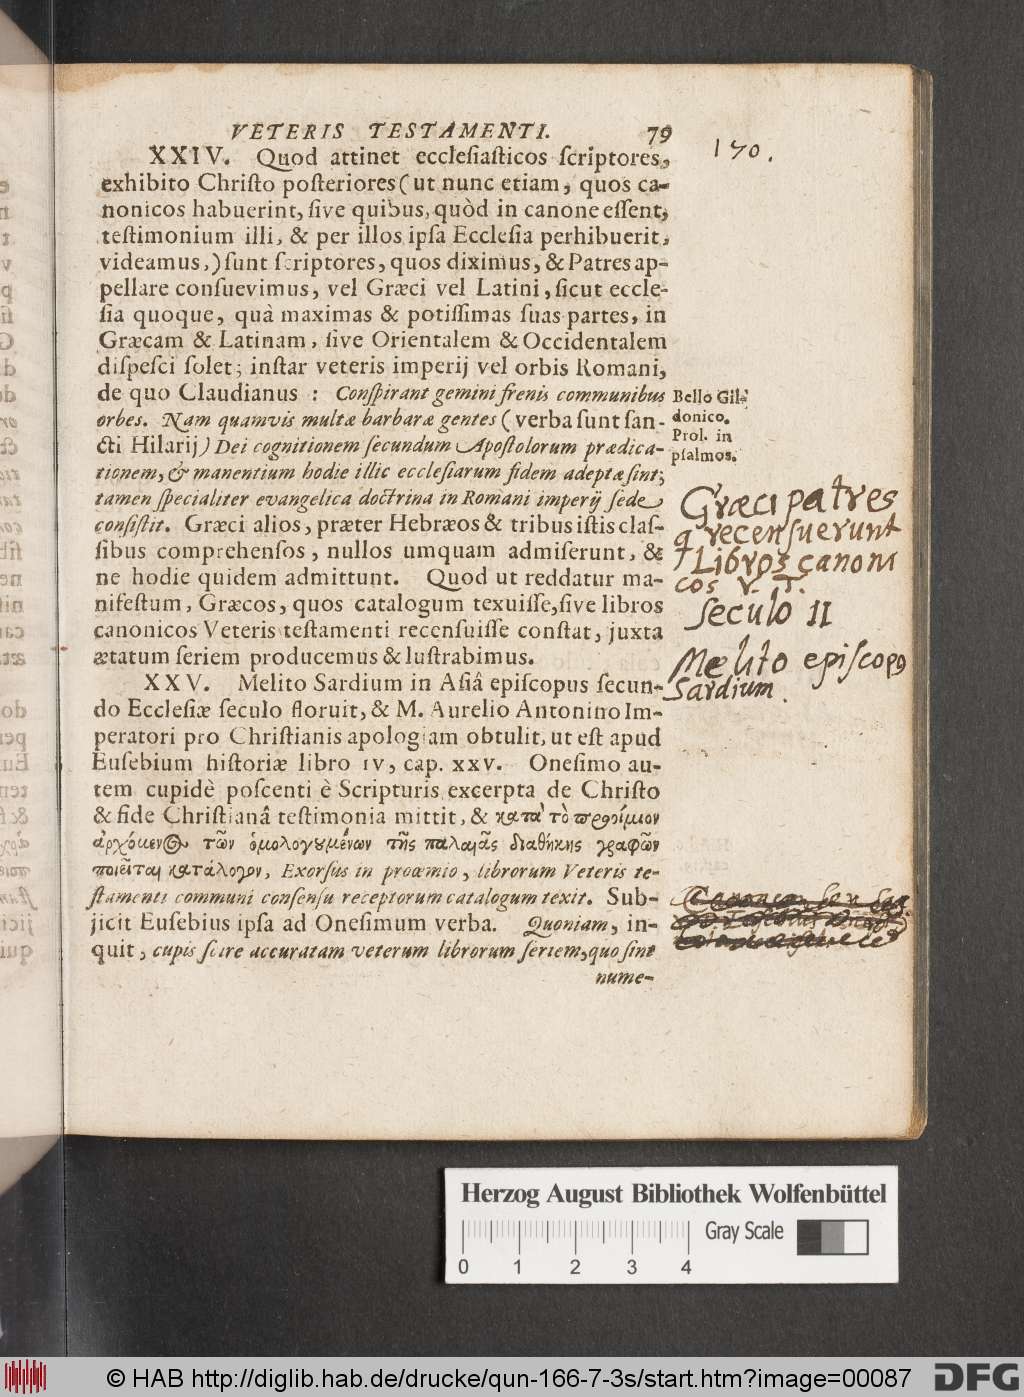 VETERIS TESTAMENTI. 79
170.
XXIV. Quod attinet ecclesiasticos scriptores,
exhibito Christo posteriores (ut nunc etiam, quos ca-
nonicos habuerint, sive quibus, quòd in canone essent,
testimonium illi, & per illos ipsa Ecclesia perhibuerit,
videamus,) sunt scriptores, quos diximus, & Patres ap-
pellare consuevimus, vel Græci vel Latini, sicut eccle-
sia quoque, quà maximas & potissimas suas partes, in
Græcam & Latinam, sive Orientalem & Occidentalem
dispesci solet; instar veteris imperij vel orbis Romani,
de quo Claudianus : Conspirant gemini frenis communibus
orbes. Nam quamvis multæ barbaræ gentes (verba sunt san-
cti Hilarij) Dei cognitionem secundum Apostolorum prædica-
tionem, & manentium hodie illic ecclesiarum fidem adeptæ sint;
tamen specialiter evangelica doctrina in Romani imperij sede
consistit. Græci alios, præter Hebræos & tribus istis clas-
sibus comprehensos, nullos umquam admiserunt, &
ne hodie quidem admittunt. Quod ut reddatur ma-
nifestum, Græcos, quos catalogum texuisse, sive libros
canonicos Veteris testamenti recensuisse constat, juxta
ætatum seriem producemus & lustrabimus.
XXV. Melito Sardium in Asiâ episcopus secun-
do Ecclesiæ seculo floruit, & M. Aurelio Antonino Im-
peratori pro Christianis apologiam obtulit, ut est apud
Eusebium historiæ libro IV, cap. XXV. Onesimo au-
tem cupidè poscenti è Scripturis excerpta de Christo
& fide Christianâ testimonia mittit, & κατα' τὸ προοίμιον
ἀρχόμενος τῶν ὁμολογουμένων τῆς παλαιᾶς διαθήκης γραφῶν
ποιεῖται κατάλογον, Exorsus in proœmio, librorum Veteris te-
stamenti communi consensu receptorum catalogum texit. Sub-
jicit Eusebius ipsa ad Onesimum verba. Quoniam, in-
quit, cupis scire accuratam veterum librorum seriem, quo sint
nume-
Bello Gil-
donico.
Prol. in
psalmos.
Græci patres
q recensuerunt
Libros canoni
cos V. T.
seculo II
Melito episcopq
Sardium.
Herzog August Bibliothek Wolfenbüttel
0 1 2 3 4
Gray Scale
© HAB http://diglib.hab.de/drucke/qun-166-7-3s/start.htm?image=00087
DFG